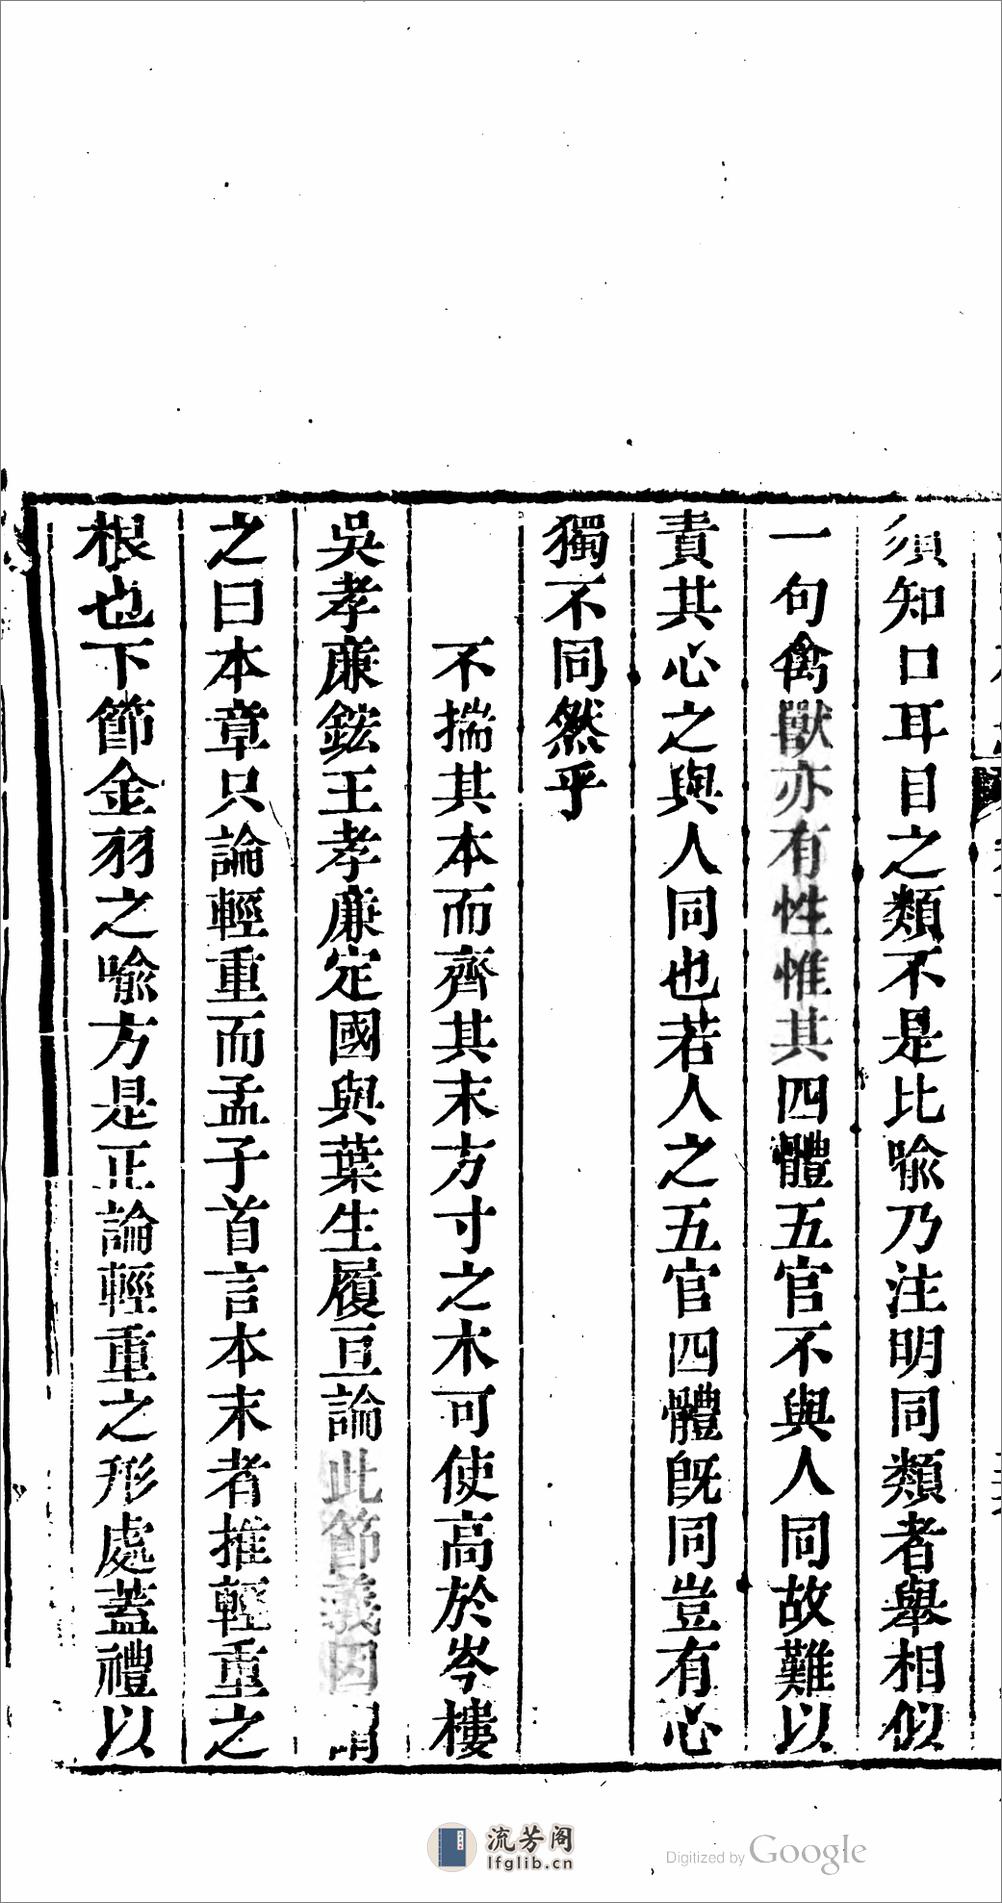 須知口耳目之類不是比喻乃注明同類者舉相似
一句禽獸亦有性惟其四體五官不與人同故難以
責其心之與人同也若人之五官四體旣同豈有心
獨不同然乎
不揣其本而齊其末方寸之木可使高於岑樓
吳孝廉鋐王孝廉定國與葉生履亘論此節義因謂
之曰本章只論輕重而孟子首言本末者推輕重之
根也下節金羽之喻方是正論輕重之形處蓋禮以
流芳阁
lfglib.cn
Digitized by Google